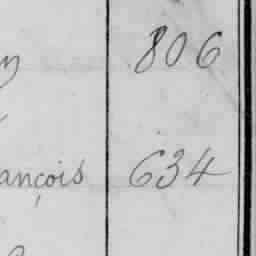 806
ançois 634